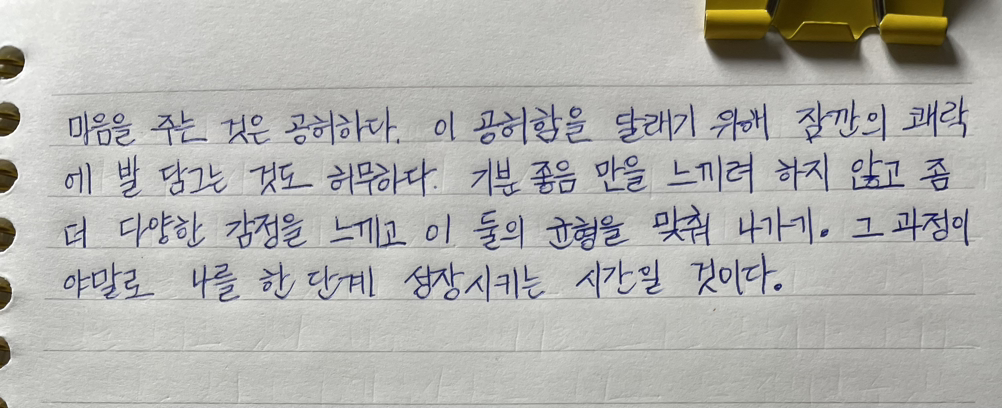 미음을 주는 것은 공허하다. 이 공허함을 달래기 위해 잠깐의 쾌락
에 발 담그는 것도 허무하다. 기분 좋음 만을 느끼려 하지 않고 좀
더 다양한 감정을 느끼고 이 둘의 균형을 맞춰 나가기. 그 과정이
야말로 나를 한 단계 성장시키는 시간일 것이다.